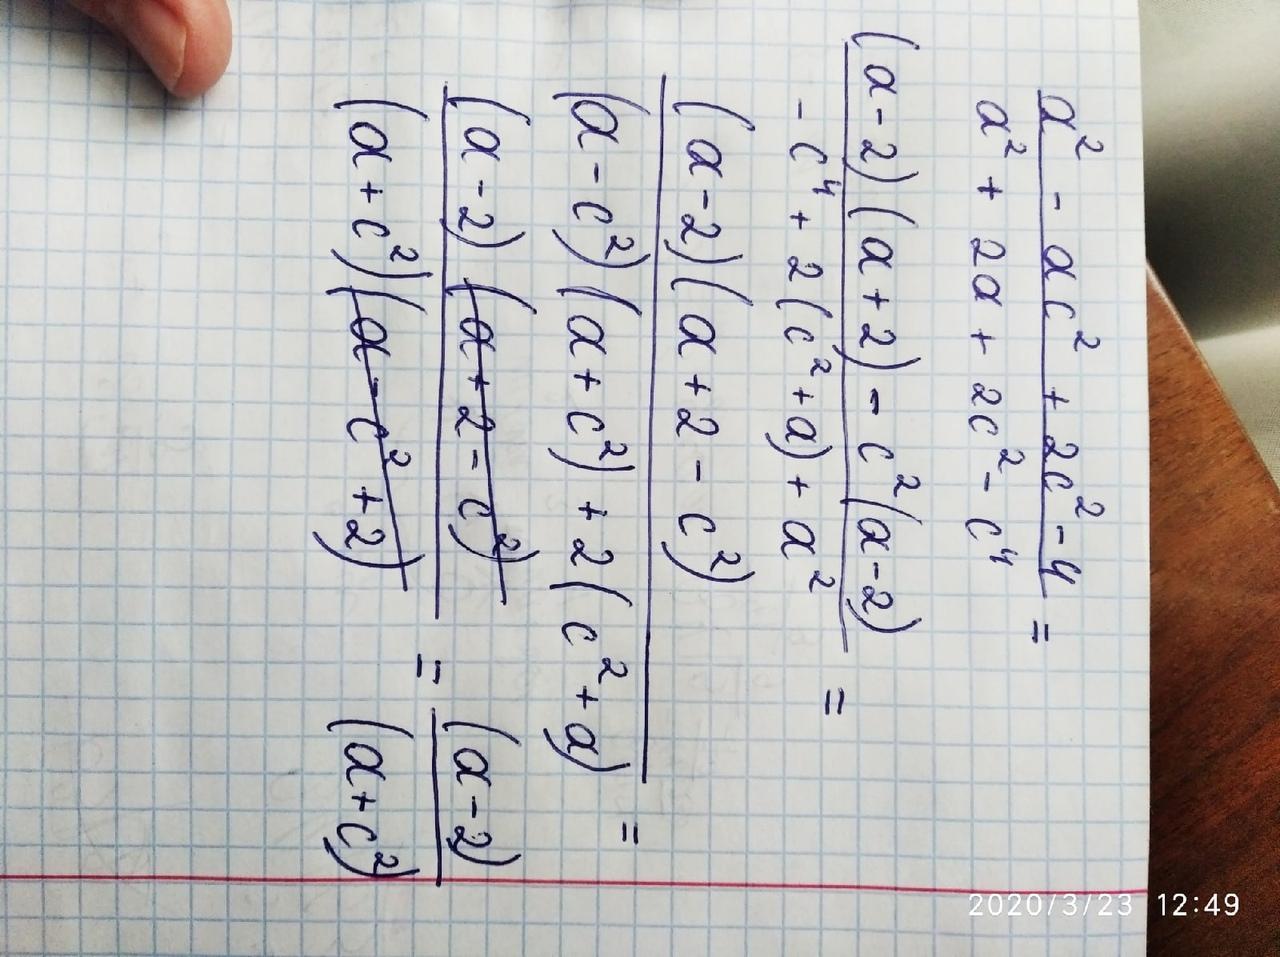 a² - ac² + 2c² - 4 =
a² + 2a + 2c² - c⁴
(a-2)(a+2) - c²(a-2) =
- c⁴ + 2(c²+a) + a²
(a-2)(a+2-c²) =
(a-c²)(a+c²)+2(c²+a)
(a-2)(a+2-c²) = (a-2)
(a+c²)(a-c²+2) (a+c²)
2020/3/23 12:49